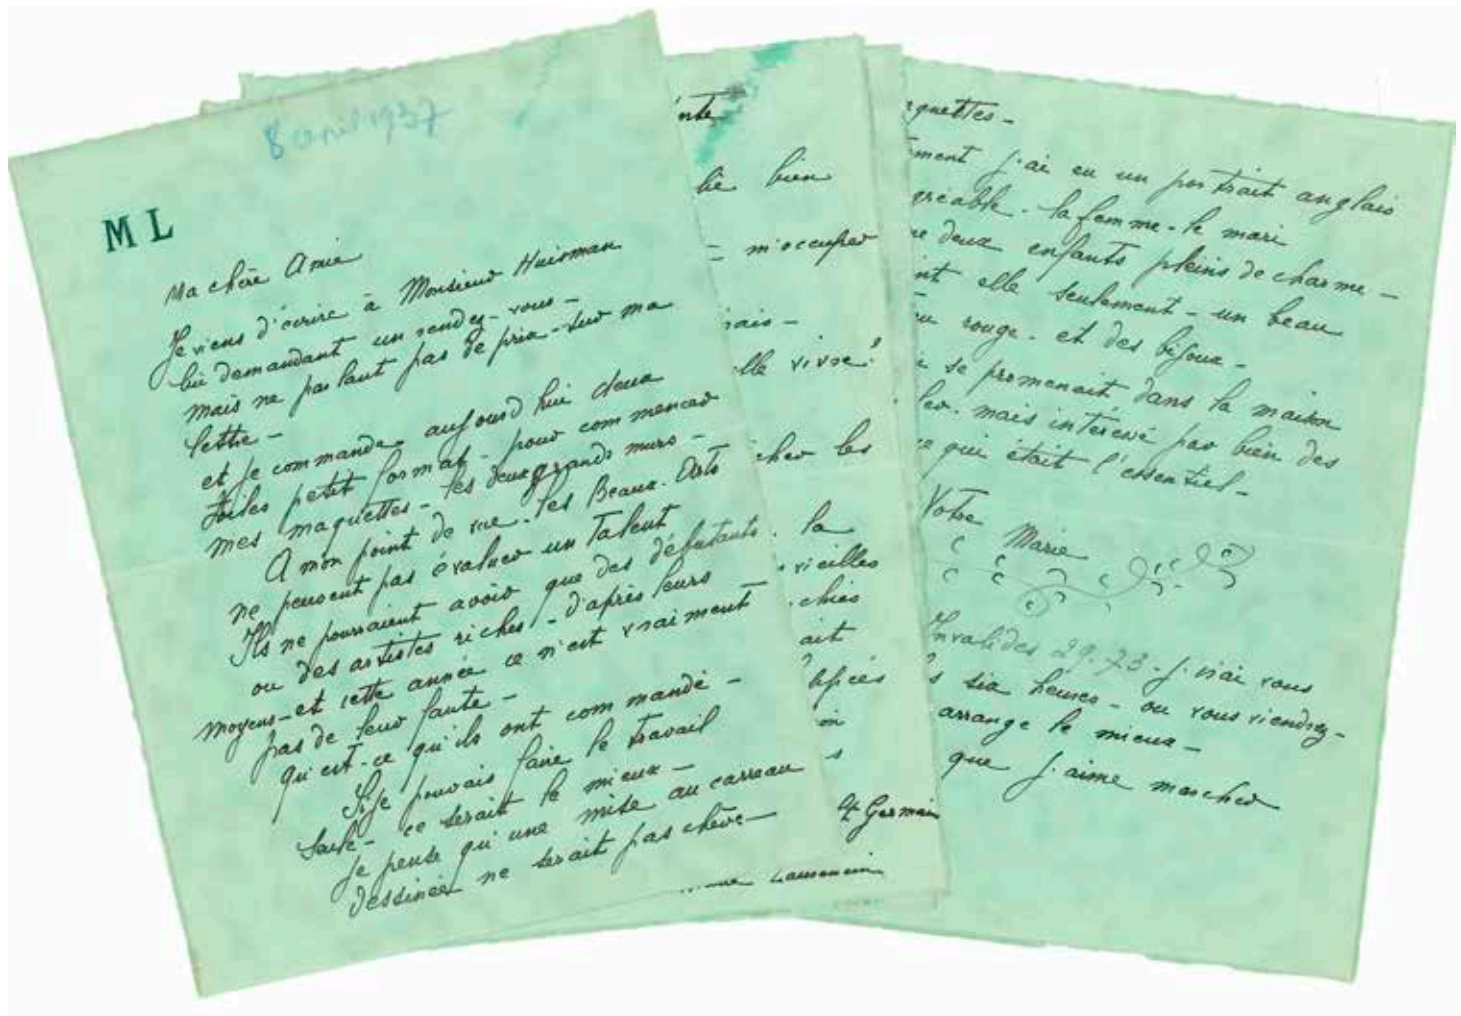 8 avril 1937
M L
Ma chère Amie
Je viens d'écrire à Monsieur Huisman
lui demandant un rendez-vous -
mais ne parlant pas de prix - sur ma
lettre -
et je commande aujourd'hui deux
toiles petit format - pour commencer
mes maquettes - les deux grands murs -
A mon point de vue - les Beaux-Arts
ne peuvent pas évaluer un talent
Ils ne pourraient avoir que des débutants
ou des artistes riches - d'après leurs
moyens - et cette année ce n'est vraiment
pas de leur faute -
qu'est-ce qu'ils ont commandé -
Si je pouvais faire le travail
seule - ce serait le mieux -
je pense qu'une mise au carreau
dessinée ne serait pas chère -
nte
lié bien
m'occuper
rais -
elle vivre?
cher les
la
vieilles
chies
ait
lifiées
on
s
Germain
Laurencin
quettes -
ment j'ai eu un portrait anglais
gréable - la femme - le mari
deux enfants pleins de charme -
nt elle seulement - un beau
rouge - et des bijoux -
se promenait dans la maison
ler - mais intéressé par bien des
ce qui était l'essentiel -
Votre
Marie
Invalides 29.73 - j'irai vous
six heures - ou vous viendrez -
arrange le mieux -
que j'aime marcher